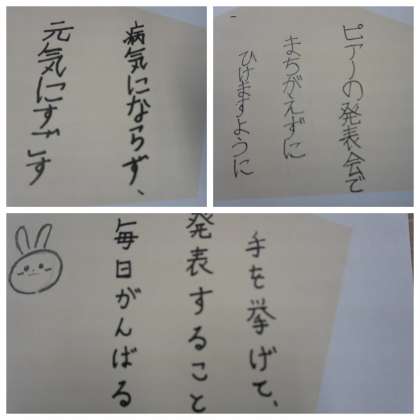 病気にならず、
元気にすごす
ピアノの発表会で
まちがえずに
ひけますように
手を挙げて、
発表すること
毎日がんばる